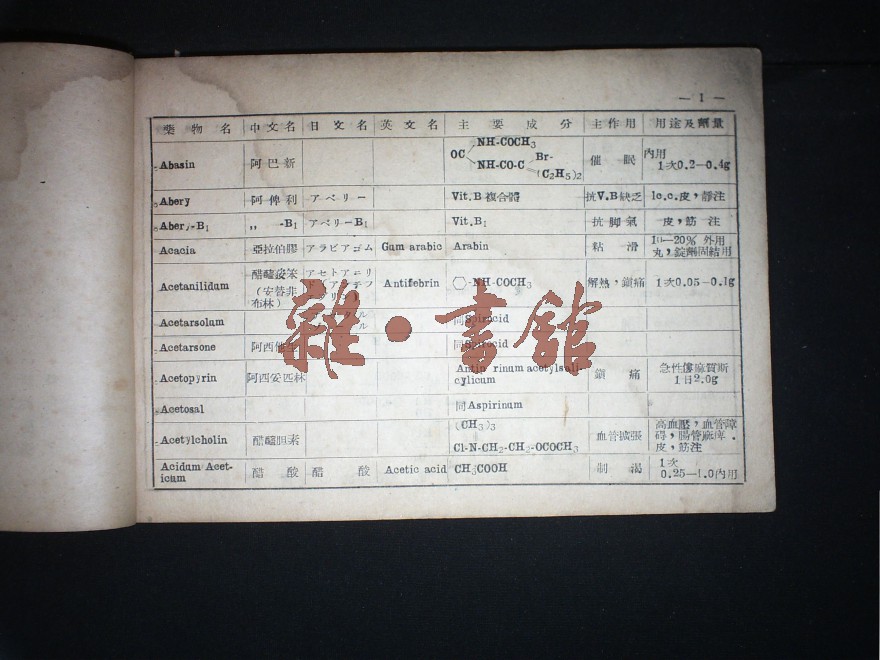 — 1 —
藥物名 中文名 日文名 英文名 主要成分 主作用 用途及劑量
Abasin 阿巴新 OC NH-COCH3 NH-CO-C Br- (C2H5)2 催眠 內用 1次0.2—0.4g
Abery 阿俾利 アベリー Vit.B 複合體 抗V.B缺乏 1c.c.皮，靜注
Abery-B1 〃 -B1 アベリーB1 Vit.B1 抗脚氣 皮，筋注
Acacia 亞拉伯膠 アラビアゴム Gum arabic Arabin 粘滑 10—20% 外用
丸，錠劑固結用
Acetanilidum 醋醯 苯 アセトアニリ Antifebrin -NH-COCH3 解熱，鎮痛 1次0.05—0.1g
（安替非
布林）
Acetarsolum 同Spirocid
Acetarsone 阿西 同Spirocid
Acetopyrin 阿西安匹林 rinum acetylsali-
cylicum 鎮痛 急性僂麻質斯
1日2.0g
Acetosal 同Aspirinum
Acetylcholin 醋醯胆素 (CH3)3
Cl-N-CH2-CH2-OCOCH3 血管擴張 高血壓，血管障
碍，腸管麻痺．
皮，筋注
Acidum Acet-
icum 醋酸 醋酸 Acetic acid CH3COOH 制 1次
0.25—1.0內用
雜·書館